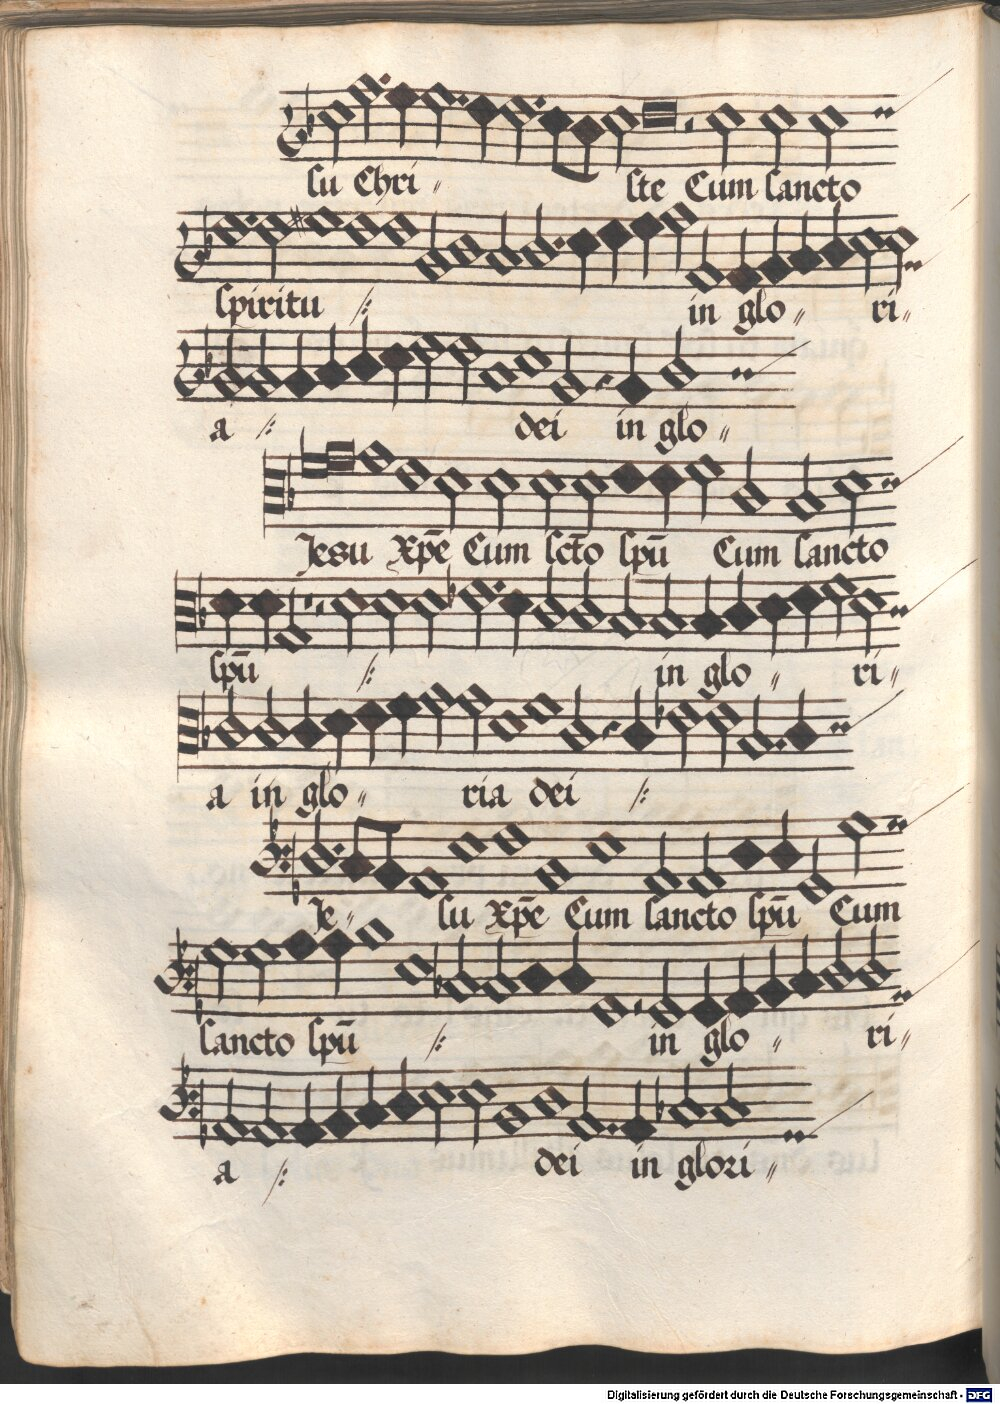 su Chri〃 ste Cum sancto
spiritu /: in glo〃 ri〃
a /: dei in glo〃
Jesu Xp̄e Cum sct̄o spū Cum sancto
spū /: in glo〃 ri〃
a in glo〃 ria dei /:
Je〃 su Xp̄e Cum sancto spū Cum
sancto spū /: in glo〃 ri〃
a /: dei in glori〃
Digitalisierung gefördert durch die Deutsche Forschungsgemeinschaft - DFG